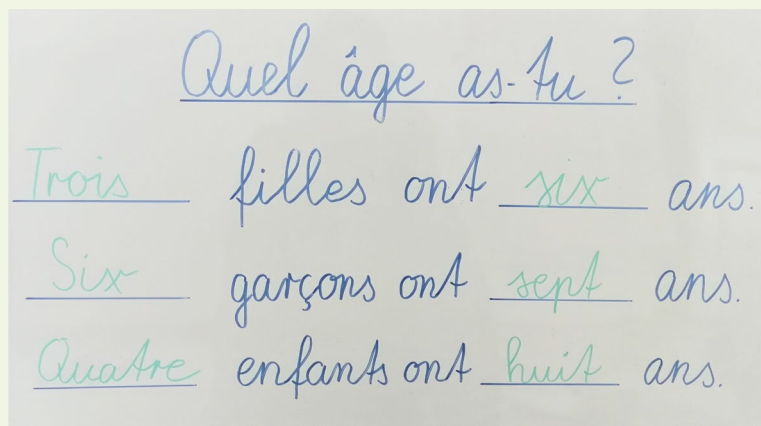 Quel âge as-tu ?
Trois filles ont six ans.
Six garçons ont sept ans.
Quatre enfants ont huit ans.